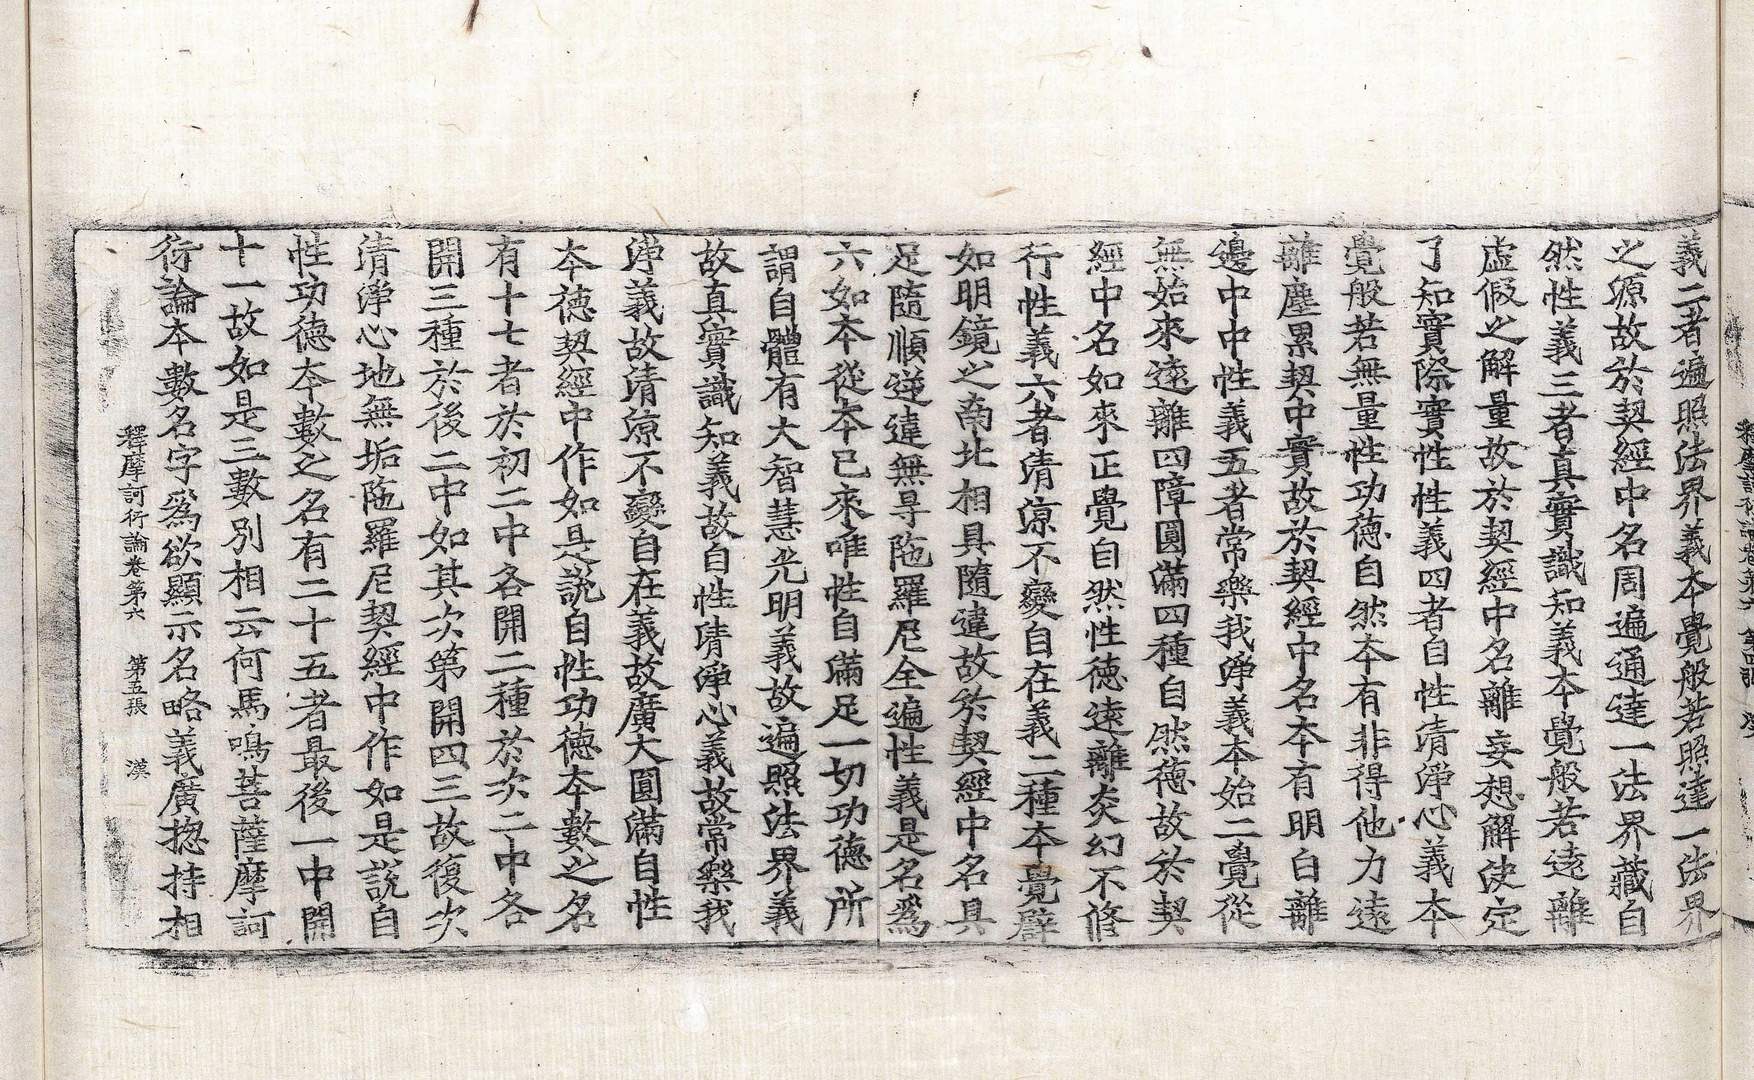 義二者遍照法界義本覺般若照達一法界
之源故於契經中名周遍通達一法界藏自
然性義三者真實識知義本覺般若遠離
虛假之解量故於契經中名離妄想解使定
了知實際實性性義四者自性清淨心義本
覺般若無量性功德自然本有非得他力遠
離塵累契中實故於契經中名本有明白離
邊中中性義五者常樂我淨義本始二覺從
無始來遠離四障圓滿四種自然德故於契
經中名如來正覺自然性德遠離炎幻不修
行性義六者清涼不變自在義二種本覺譬
如明鏡之南北相具隨違故於契經中名具
足隨順逆違無㝵陁羅尼全遍性義是名爲
六如本從本已來唯性自滿足一切功德所
謂自體有大智慧光明義故遍照法界義
故真實識知義故自性清淨心義故常樂我
淨義故清涼不變自在義故廣大圓滿自性
本德契經中作如是說自性功德本數之名
有十七者於初二中各開二種於次二中各
開三種於後二中如其次第開四三故復次
清淨心地無垢陁羅尼契經中作如是說自
性功德本數之名有二十五者最後一中開
十一故如是三數別相云何馬鳴菩薩摩訶
衍論本數名字爲欲顯示名略義廣揔持相
釋摩訶衍論卷第六 第五張 漢